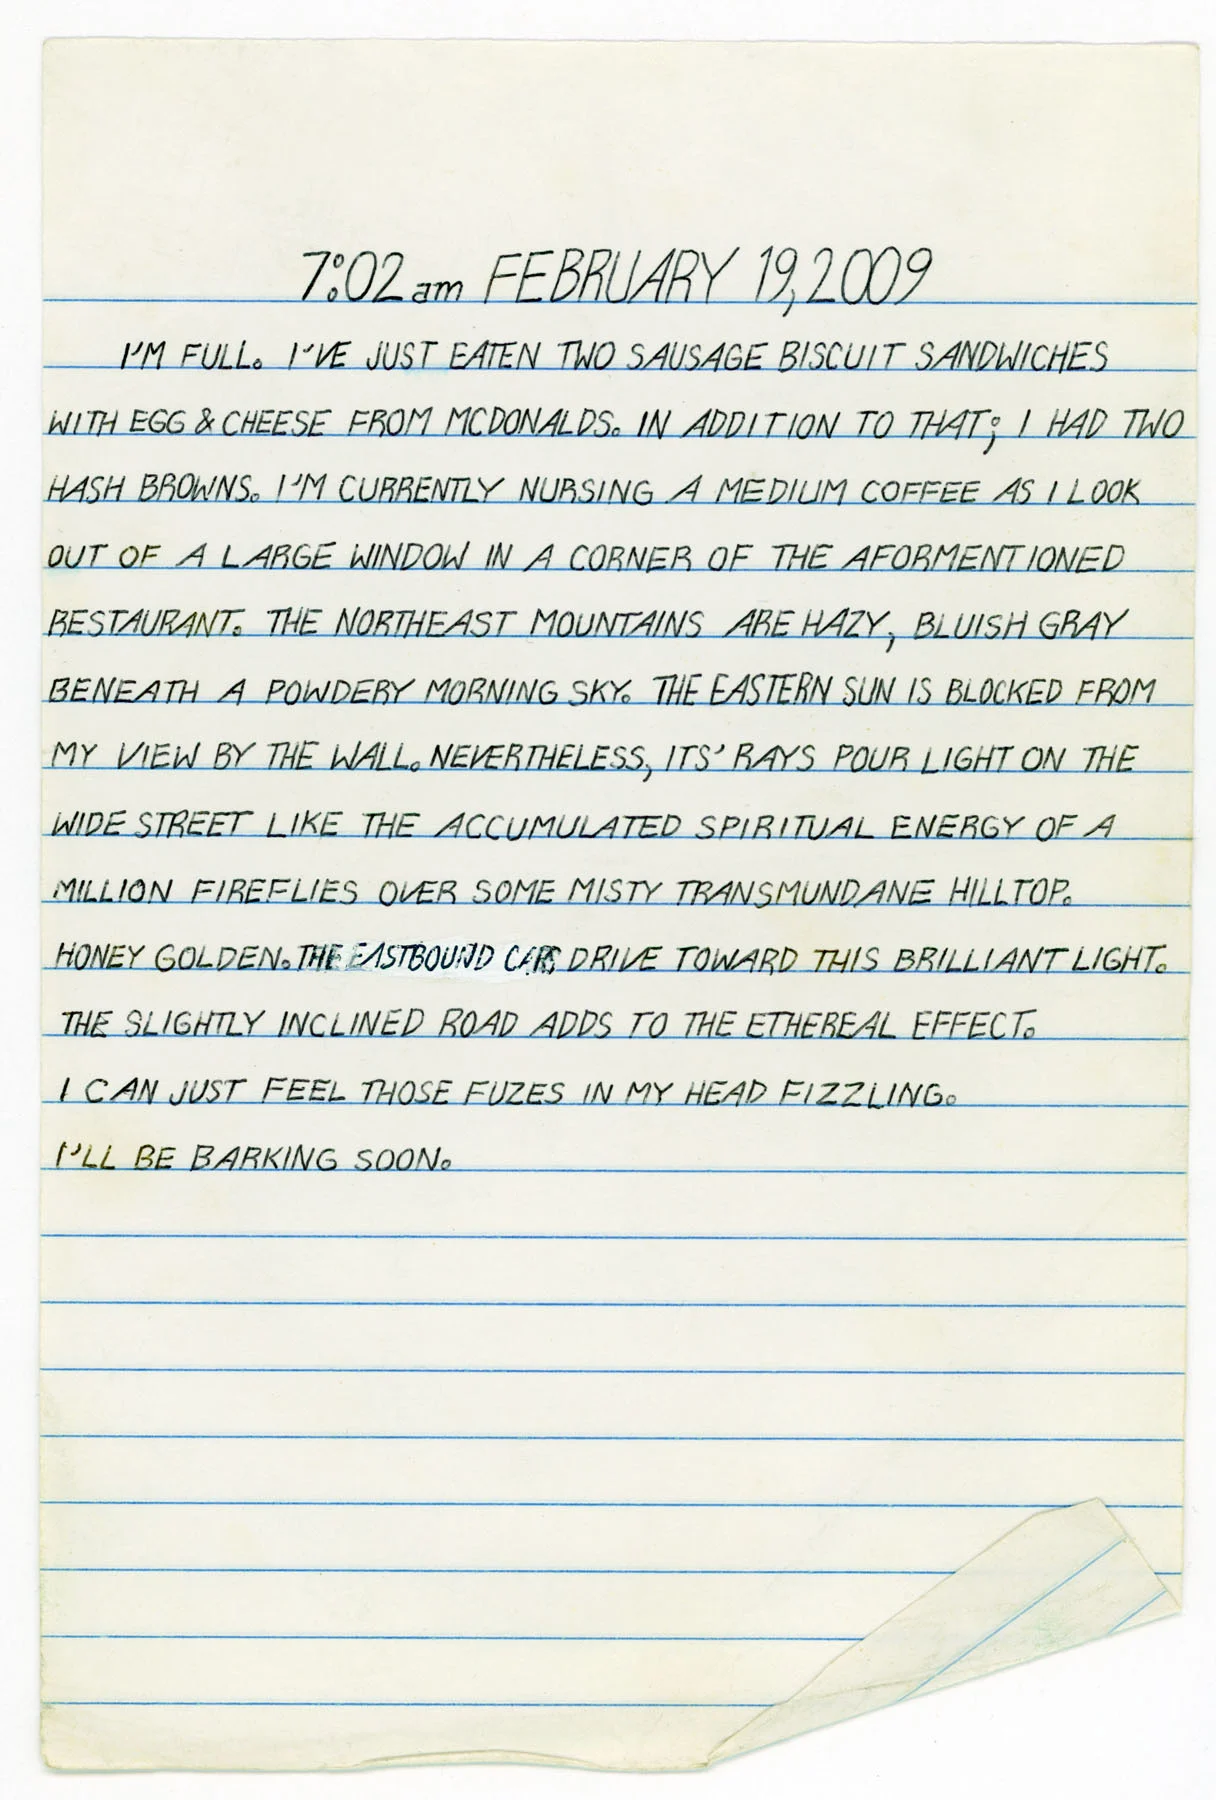 7:02 am FEBRUARY 19, 2009
I'M FULL. I'VE JUST EATEN TWO SAUSAGE BISCUIT SANDWICHES
WITH EGG & CHEESE FROM MCDONALDS. IN ADDITION TO THAT; I HAD TWO
HASH BROWNS. I'M CURRENTLY NURSING A MEDIUM COFFEE AS I LOOK
OUT OF A LARGE WINDOW IN A CORNER OF THE AFORMENTIONED
RESTAURANT. THE NORTHEAST MOUNTAINS ARE HAZY, BLUISH GRAY
BENEATH A POWDERY MORNING SKY. THE EASTERN SUN IS BLOCKED FROM
MY VIEW BY THE WALL. NEVERTHELESS, ITS' RAYS POUR LIGHT ON THE
WIDE STREET LIKE THE ACCUMULATED SPIRITUAL ENERGY OF A
MILLION FIREFLIES OVER SOME MISTY TRANSMUNDANE HILLTOP.
HONEY GOLDEN. THE EASTBOUND CARS DRIVE TOWARD THIS BRILLIANT LIGHT.
THE SLIGHTLY INCLINED ROAD ADDS TO THE ETHEREAL EFFECT.
I CAN JUST FEEL THOSE FUZES IN MY HEAD FIZZLING.
I'LL BE BARKING SOON.